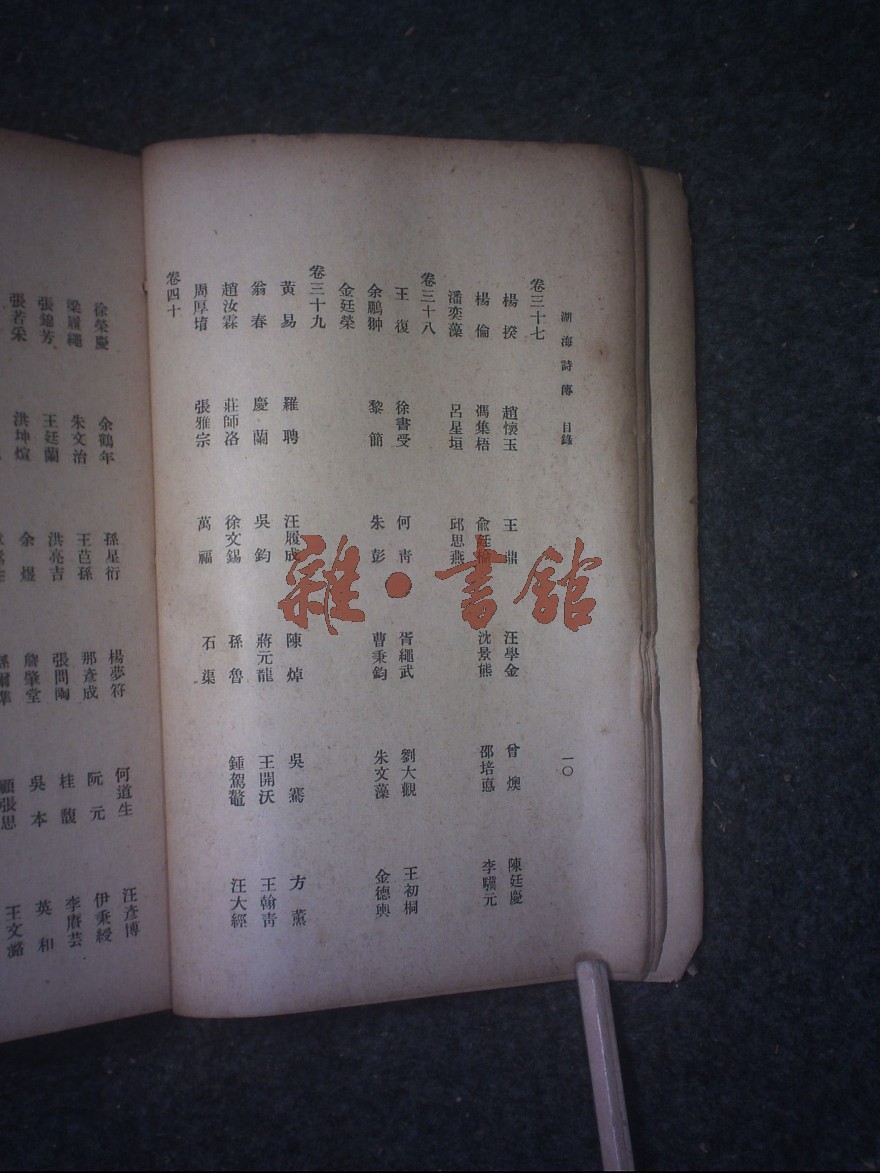 湖海詩傳 目錄 一〇
卷三十七
楊揆 趙懷玉 王鼎 汪學金 曾燠 陳廷慶
楊倫 馮集梧 沈景熊 邵培惪 李驥元
潘奕藻 呂星垣 邱思燕
卷三十八
王復 徐書受 何青 胥繩武 劉大觀 王初桐
余鵬翀 黎簡 朱彭 曹秉鈞 朱文藻 金德輿
金廷榮
卷三十九
黃易 羅聘 汪履成 陳焯 吳騫 方薰
翁春 慶蘭 吳鈞 蔣元龍 王開沃 王翰青
趙汝霖 莊師洛 徐文錫 孫魯 鍾駕鼇 汪大經
周厚堉 張雅宗 萬福 石渠
卷四十
徐榮慶 余鶴年 孫星衍 楊夢符 何道生 汪彥博
梁履繩 朱文治 王芑孫 那彥成 阮元 伊秉綬
張錦芳 王廷蘭 洪亮吉 張問陶 桂馥 李賡芸
張若采 洪坤煊 余煜 詹肇堂 吳本 英和
顧張思 王文潞
雜·書館